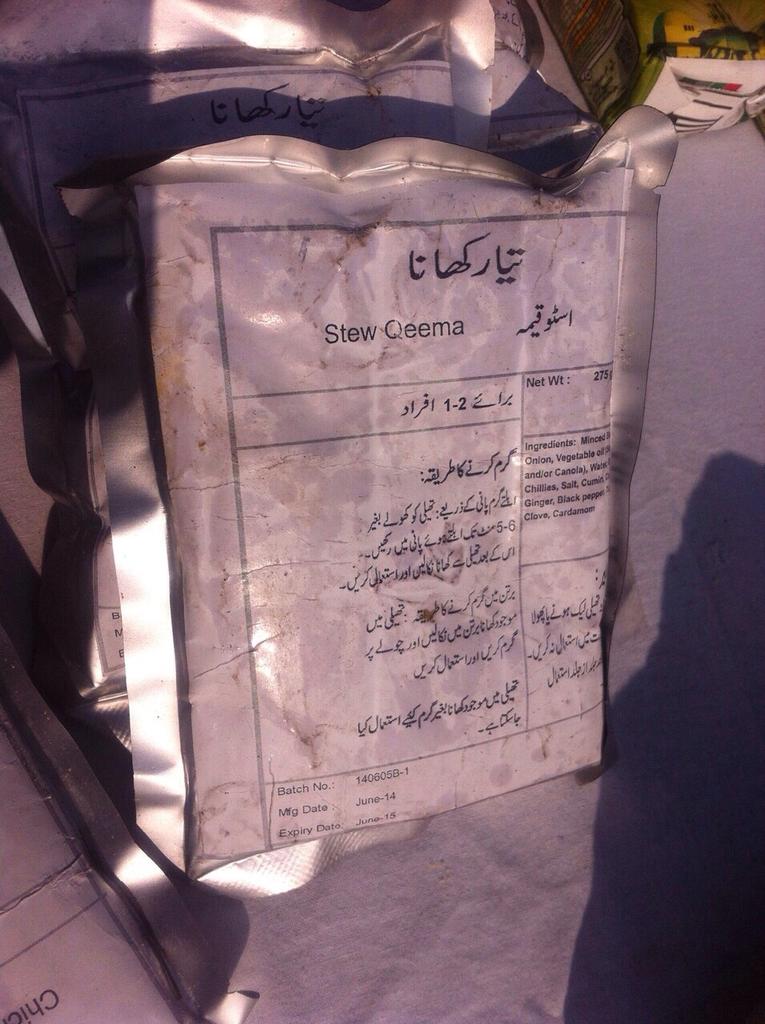 تیار کھانا
تیار کھانا
Stew Qeema
اسٹو قیمہ
برائے 2-1 افراد
Net Wt : 275
گرم کرنے کا طریقہ:
ابلتے گرم پانی کے ذریعے: تھیلی کو کھولے بغیر
5-6 منٹ تک ابلتے ہوئے پانی میں رکھیں۔
اس کے بعد تھیلی سے کھانا نکالیں اور استعمال کریں۔
برتن میں گرم کرنے کا طریقہ: تھیلی میں
موجود کھانا برتن میں نکالیں اور چولہے پر
گرم کریں اور استعمال کریں
تھیلی میں موجود کھانا بغیر گرم کیئے استعمال کیا
جا سکتا ہے۔
Ingredients: Minced
Onion, Vegetable oil
and/or Canola), Water
Chillies, Salt, Cumin,
Ginger, Black pepper,
Clove, Cardamom
تھیلی لیک ہونے یا پھولا
میں استعمال نہ کریں۔
جلد از جلد استعمال
Batch No.: 140605B-1
Mfg Date : June-14
Expiry Date: June-15
B
M
E
Chic